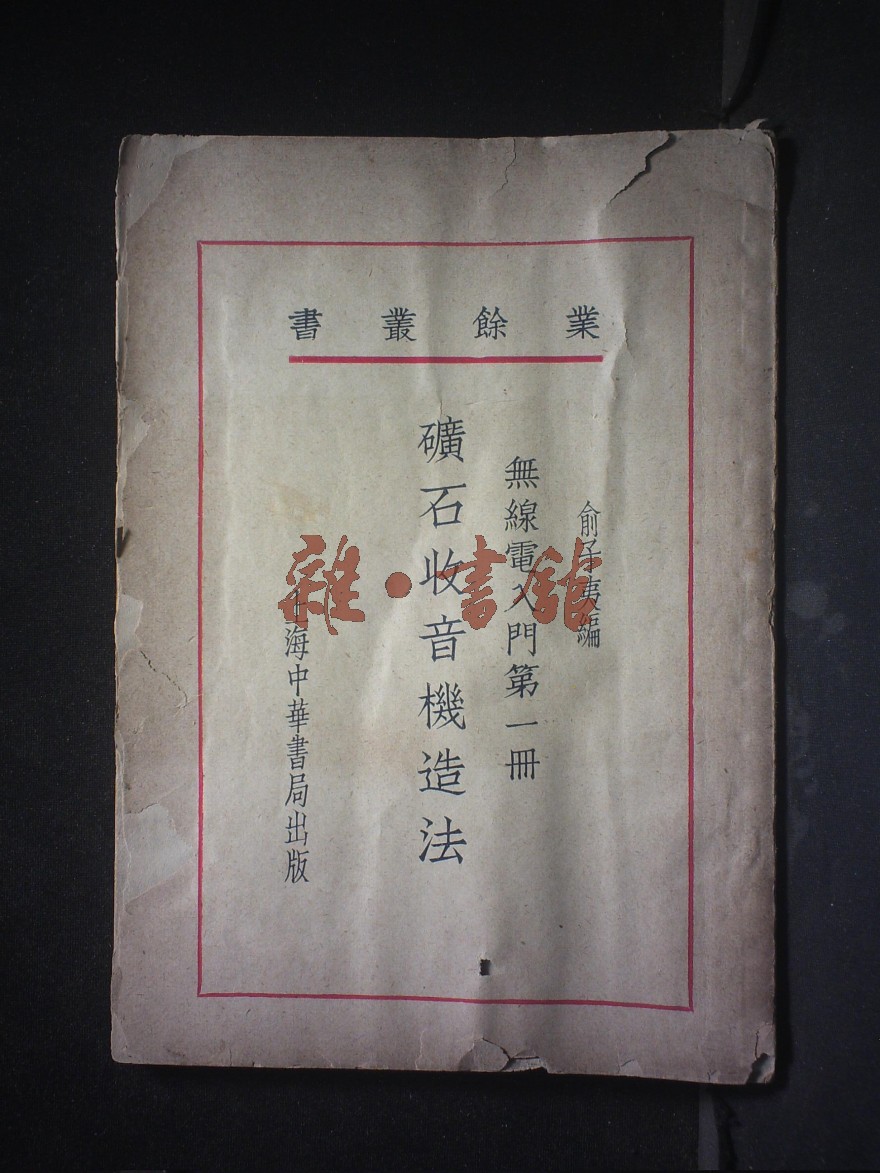 業餘叢書
俞子夷編
無線電入門第一冊
礦石收音機造法
上海中華書局出版
雜·書館